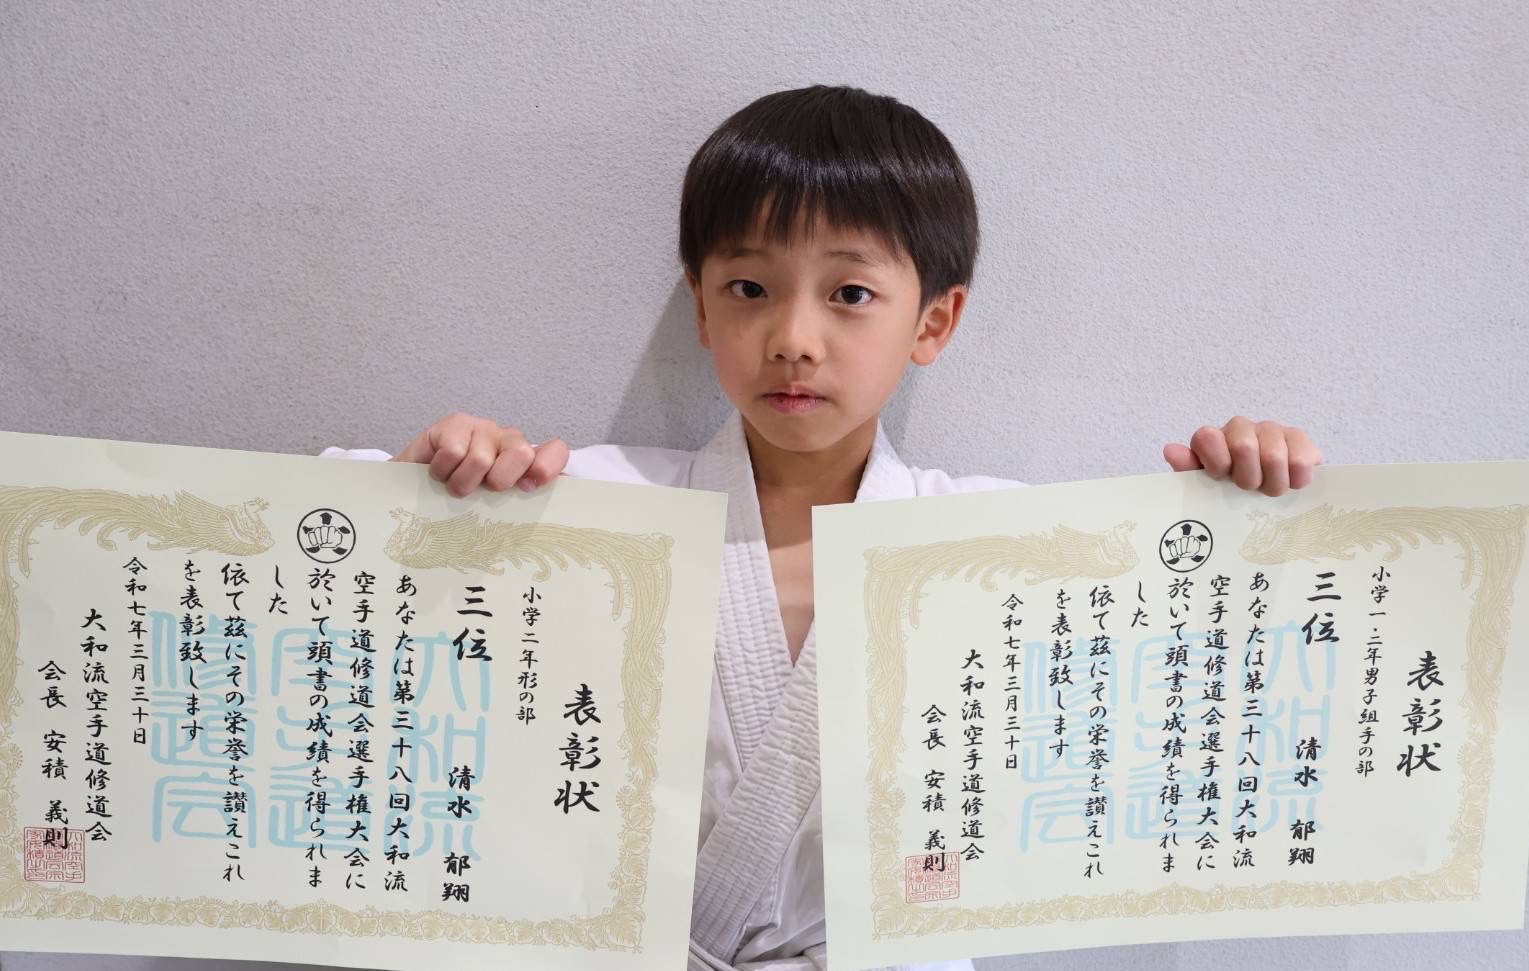 表彰状
小学二年形の部
三位 清水 郁翔
あなたは第三十八回大和流
空手道修道会選手権大会に
於いて頭書の成績を得られま
した
依て茲にその栄誉を讃えこれ
を表彰致します
令和七年三月三十日
大和流空手道修道会
会長 安積 義則
大和流
空手道
修道会
表彰状
小学一・二年男子組手の部
三位 清水 郁翔
あなたは第三十八回大和流
空手道修道会選手権大会に
於いて頭書の成績を得られま
した
依て茲にその栄誉を讃えこれ
を表彰致します
令和七年三月三十日
大和流空手道修道会
会長 安積 義則
大和流
空手道
修道会